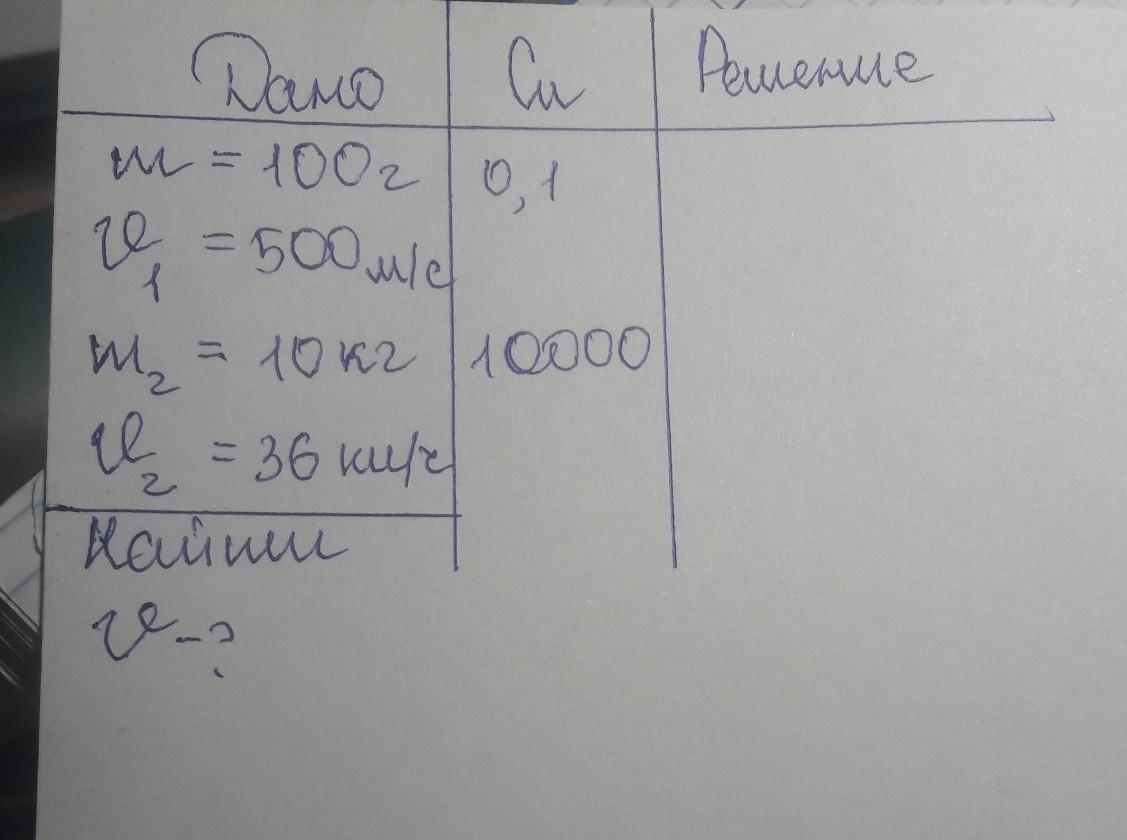 Дано Си Решение
m = 100г 0,1
v₁ = 500м/с
m₂ = 10кг 10000
v₂ = 36 км/ч
Найти
v-?